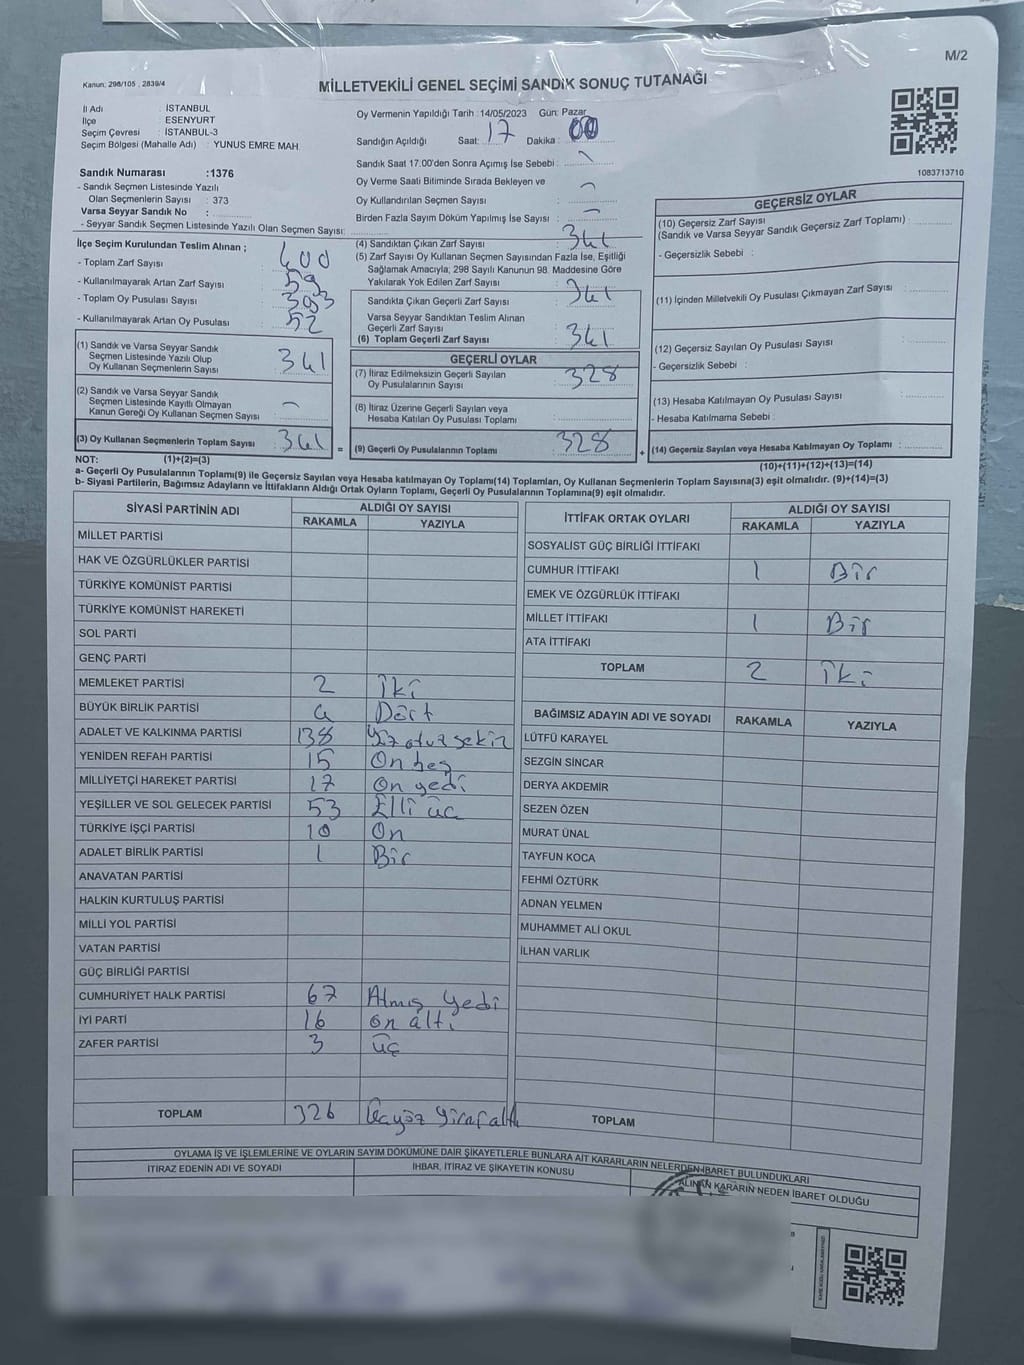 M/2
Kanun: 298/105 , 2839/4
MİLLETVEKİLİ GENEL SEÇİMİ SANDIK SONUÇ TUTANAĞI
İl Adı : İSTANBUL
İlçe : ESENYURT
Seçim Çevresi : İSTANBUL-3
Seçim Bölgesi (Mahalle Adı) : YUNUS EMRE MAH
Oy Vermenin Yapıldığı Tarih : 14/05/2023 Gün: Pazar
Sandığın Açıldığı Saat: 17 Dakika: 00
Sandık Saat 17.00'den Sonra Açımış İse Sebebi :
Oy Verme Saati Bitiminde Sırada Bekleyen ve
Oy Kullandırılan Seçmen Sayısı :
Birden Fazla Sayım Döküm Yapılmış İse Sayısı :
1083713710
Sandık Numarası :1376
- Sandık Seçmen Listesinde Yazılı
Olan Seçmenlerin Sayısı : 373
Varsa Seyyar Sandık No :
- Seyyar Sandık Seçmen Listesinde Yazılı Olan Seçmen Sayısı:
İlçe Seçim Kurulundan Teslim Alınan ;
- Toplam Zarf Sayısı : 400
- Kullanılmayarak Artan Zarf Sayısı : 59
- Toplam Oy Pusulası Sayısı : 393
- Kullanılmayarak Artan Oy Pusulası : 52
(1) Sandık ve Varsa Seyyar Sandık
Seçmen Listesinde Yazılı Olup
Oy Kullanan Seçmenlerin Sayısı : 341
(2) Sandık ve Varsa Seyyar Sandık
Seçmen Listesinde Kayıtlı Olmayan
Kanun Gereği Oy Kullanan Seçmen Sayısı :
(3) Oy Kullanan Seçmenlerin Toplam Sayısı : 341 =
(4) Sandıktan Çıkan Zarf Sayısı : 341
(5) Zarf Sayısı Oy Kullanan Seçmen Sayısından Fazla İse, Eşitliği
Sağlamak Amacıyla, 298 Sayılı Kanunun 98. Maddesine Göre
Yakılarak Yok Edilen Zarf Sayısı :
Sandıkla Çıkan Geçerli Zarf Sayısı : 341
Varsa Seyyar Sandıktan Teslim Alınan
Geçerli Zarf Sayısı :
(6) Toplam Geçerli Zarf Sayısı : 341
GEÇERLİ OYLAR
(7) İtiraz Edilmeksizin Geçerli Sayılan
Oy Pusulalarının Sayısı : 328
(8) İtiraz Üzerine Geçerli Sayılan veya
Hesaba Katılan Oy Pusulası Toplamı :
(9) Geçerli Oy Pusulalarının Toplamı : 328 +
GEÇERSİZ OYLAR
(10) Geçersiz Zarf Sayısı
(Sandık ve Varsa Seyyar Sandık Geçersiz Zarf Toplamı) :
- Geçersizlik Sebebi :
(11) İçinden Milletvekili Oy Pusulası Çıkmayan Zarf Sayısı :
(12) Geçersiz Sayılan Oy Pusulası Sayısı :
- Geçersizlik Sebebi :
(13) Hesaba Katılmayan Oy Pusulası Sayısı :
- Hesaba Katılmama Sebebi :
(14) Geçersiz Sayılan veya Hesaba Katılmayan Oy Toplamı :
NOT: (1)+(2)=(3)
(10)+(11)+(12)+(13)=(14)
a- Geçerli Oy Pusulalarının Toplamı(9) ile Geçersiz Sayılan veya Hesaba katılmayan Oy Toplamı(14) Toplamları, Oy Kullanan Seçmenlerin Toplam Sayısına(3) eşit olmalıdır. (9)+(14)=(3)
b- Siyasi Partilerin, Bağımsız Adayların ve İttifakların Aldığı Ortak Oyların Toplamı, Geçerli Oy Pusulalarının Toplamına(9) eşit olmalıdır.
SİYASİ PARTİNİN ADI ALDIĞI OY SAYISI
RAKAMLA YAZIYLA
MİLLET PARTİSİ
HAK VE ÖZGÜRLÜKLER PARTİSİ
TÜRKİYE KOMÜNİST PARTİSİ
TÜRKİYE KOMÜNİST HAREKETİ
SOL PARTİ
GENÇ PARTİ
MEMLEKET PARTİSİ 2 İki
BÜYÜK BİRLİK PARTİSİ 4 Dört
ADALET VE KALKINMA PARTİSİ 138 Yüz otuz sekiz
YENİDEN REFAH PARTİSİ 15 On beş
MİLLİYETÇİ HAREKET PARTİSİ 17 On yedi
YEŞİLLER VE SOL GELECEK PARTİSİ 53 Elli üç
TÜRKİYE İŞÇİ PARTİSİ 10 On
ADALET BİRLİK PARTİSİ 1 Bir
ANAVATAN PARTİSİ
HALKIN KURTULUŞ PARTİSİ
MİLLİ YOL PARTİSİ
VATAN PARTİSİ
GÜÇ BİRLİĞİ PARTİSİ
CUMHURİYET HALK PARTİSİ 67 Atmış yedi
İYİ PARTİ 16 on altı
ZAFER PARTİSİ 3 üç
TOPLAM 326
İTTİFAK ORTAK OYLARI ALDIĞI OY SAYISI
RAKAMLA YAZIYLA
SOSYALİST GÜÇ BİRLİĞİ İTTİFAKI
CUMHUR İTTİFAKI 1 Bir
EMEK VE ÖZGÜRLÜK İTTİFAKI
MİLLET İTTİFAKI 1 Bir
ATA İTTİFAKI
TOPLAM 2 İki
BAĞIMSIZ ADAYIN ADI VE SOYADI RAKAMLA YAZIYLA
LÜTFÜ KARAYEL
SEZGİN SİNCAR
DERYA AKDEMİR
SEZEN ÖZEN
MURAT ÜNAL
TAYFUN KOCA
FEHMİ ÖZTÜRK
ADNAN YELMEN
MUHAMMET ALİ OKUL
İLHAN VARLIK
TOPLAM
OYLAMA İŞ VE İŞLEMLERİNE VE OYLARIN SAYIM DÖKÜMÜNE DAİR ŞİKAYETLERLE BUNLARA AİT KARARLARIN NELERDEN İBARET BULUNDUKLARI
İTİRAZ EDENİN ADI VE SOYADI İHBAR, İTİRAZ VE ŞİKAYETİN KONUSU ALINAN KARARIN NEDEN İBARET OLDUĞU